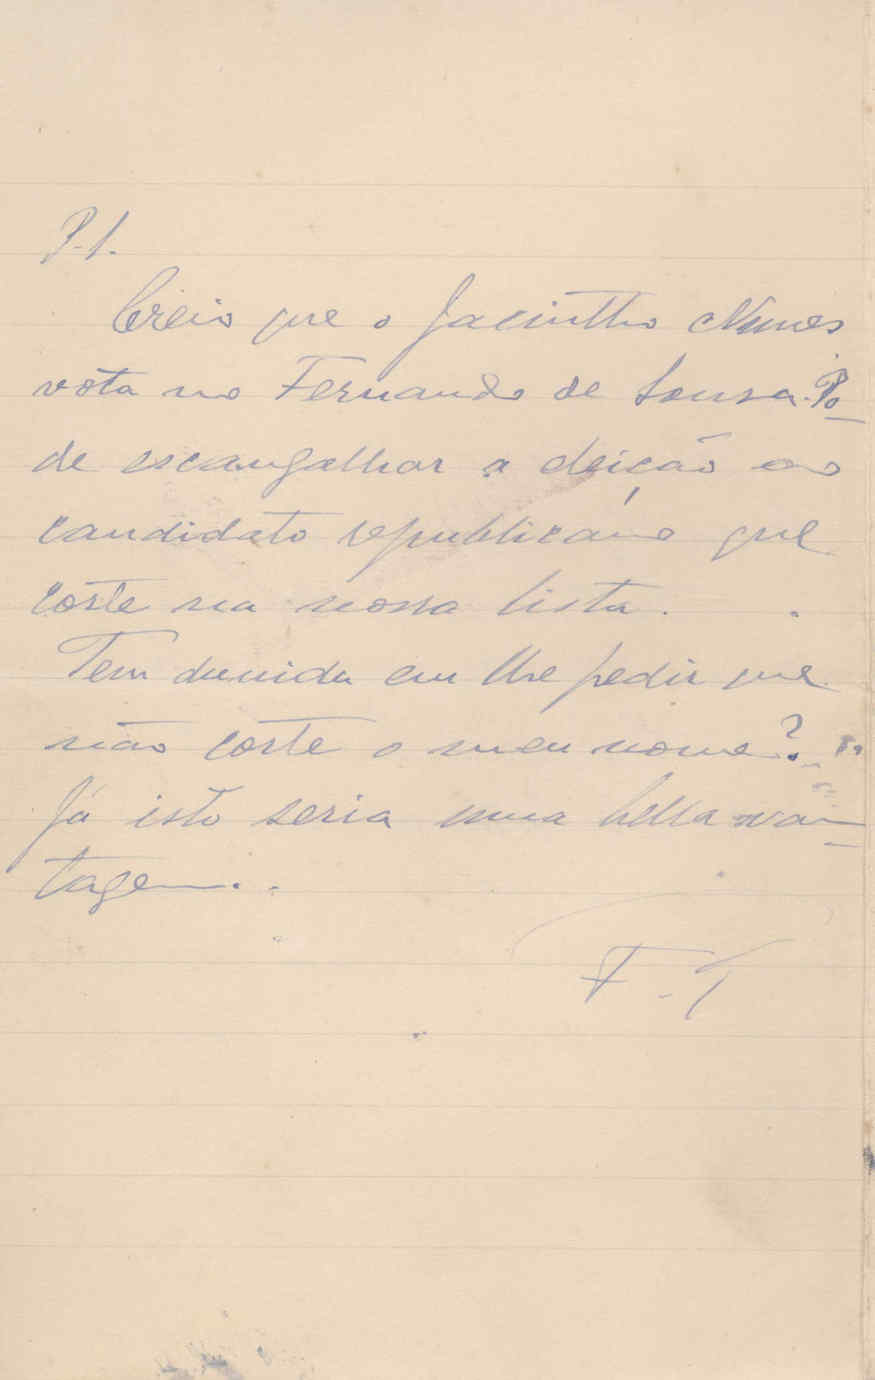 P.S.
Creio que o Jacintho Nunes
vota no Fernando de Sousa. Po-
de escangalhar a eleição ao
candidato republicano que
corte na nossa lista.
Tem duvida em lhe pedir que
não corte o meu nome?
Já isto seria uma bella van-
tagem.
F. T